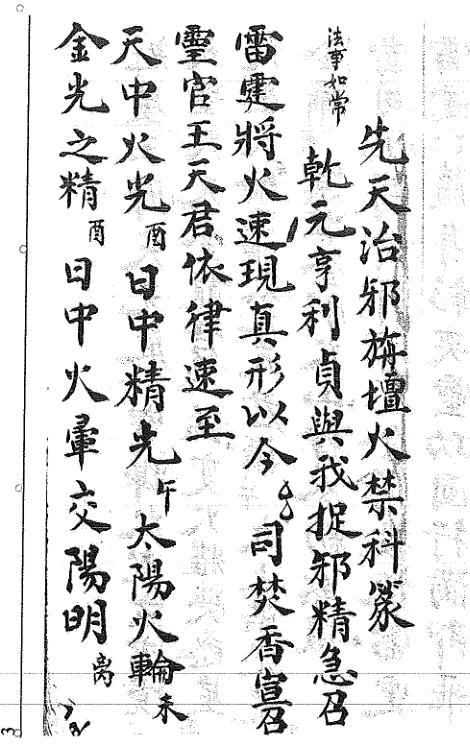 先天治邪旃壇火禁科篆
法事如常
乾元亨利貞與我捉邪精急召
雷霆將火速現真形以今司焚香宣召
靈官王天君依律速至
天中火光酉日中精光午太陽火輪未
金光之精酉日中火暈交陽明离
3